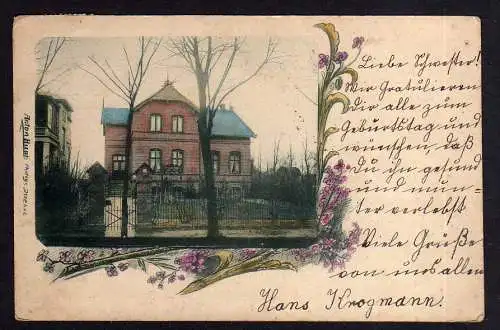 Liebe Schwester!
Wir Gratulieren
Dir alle zum
Geburtstag und
wünschen, daß
Du ihn gesund
und mun-
ter verlebst
Viele Grüße
von uns allen
Hans Krogmann.